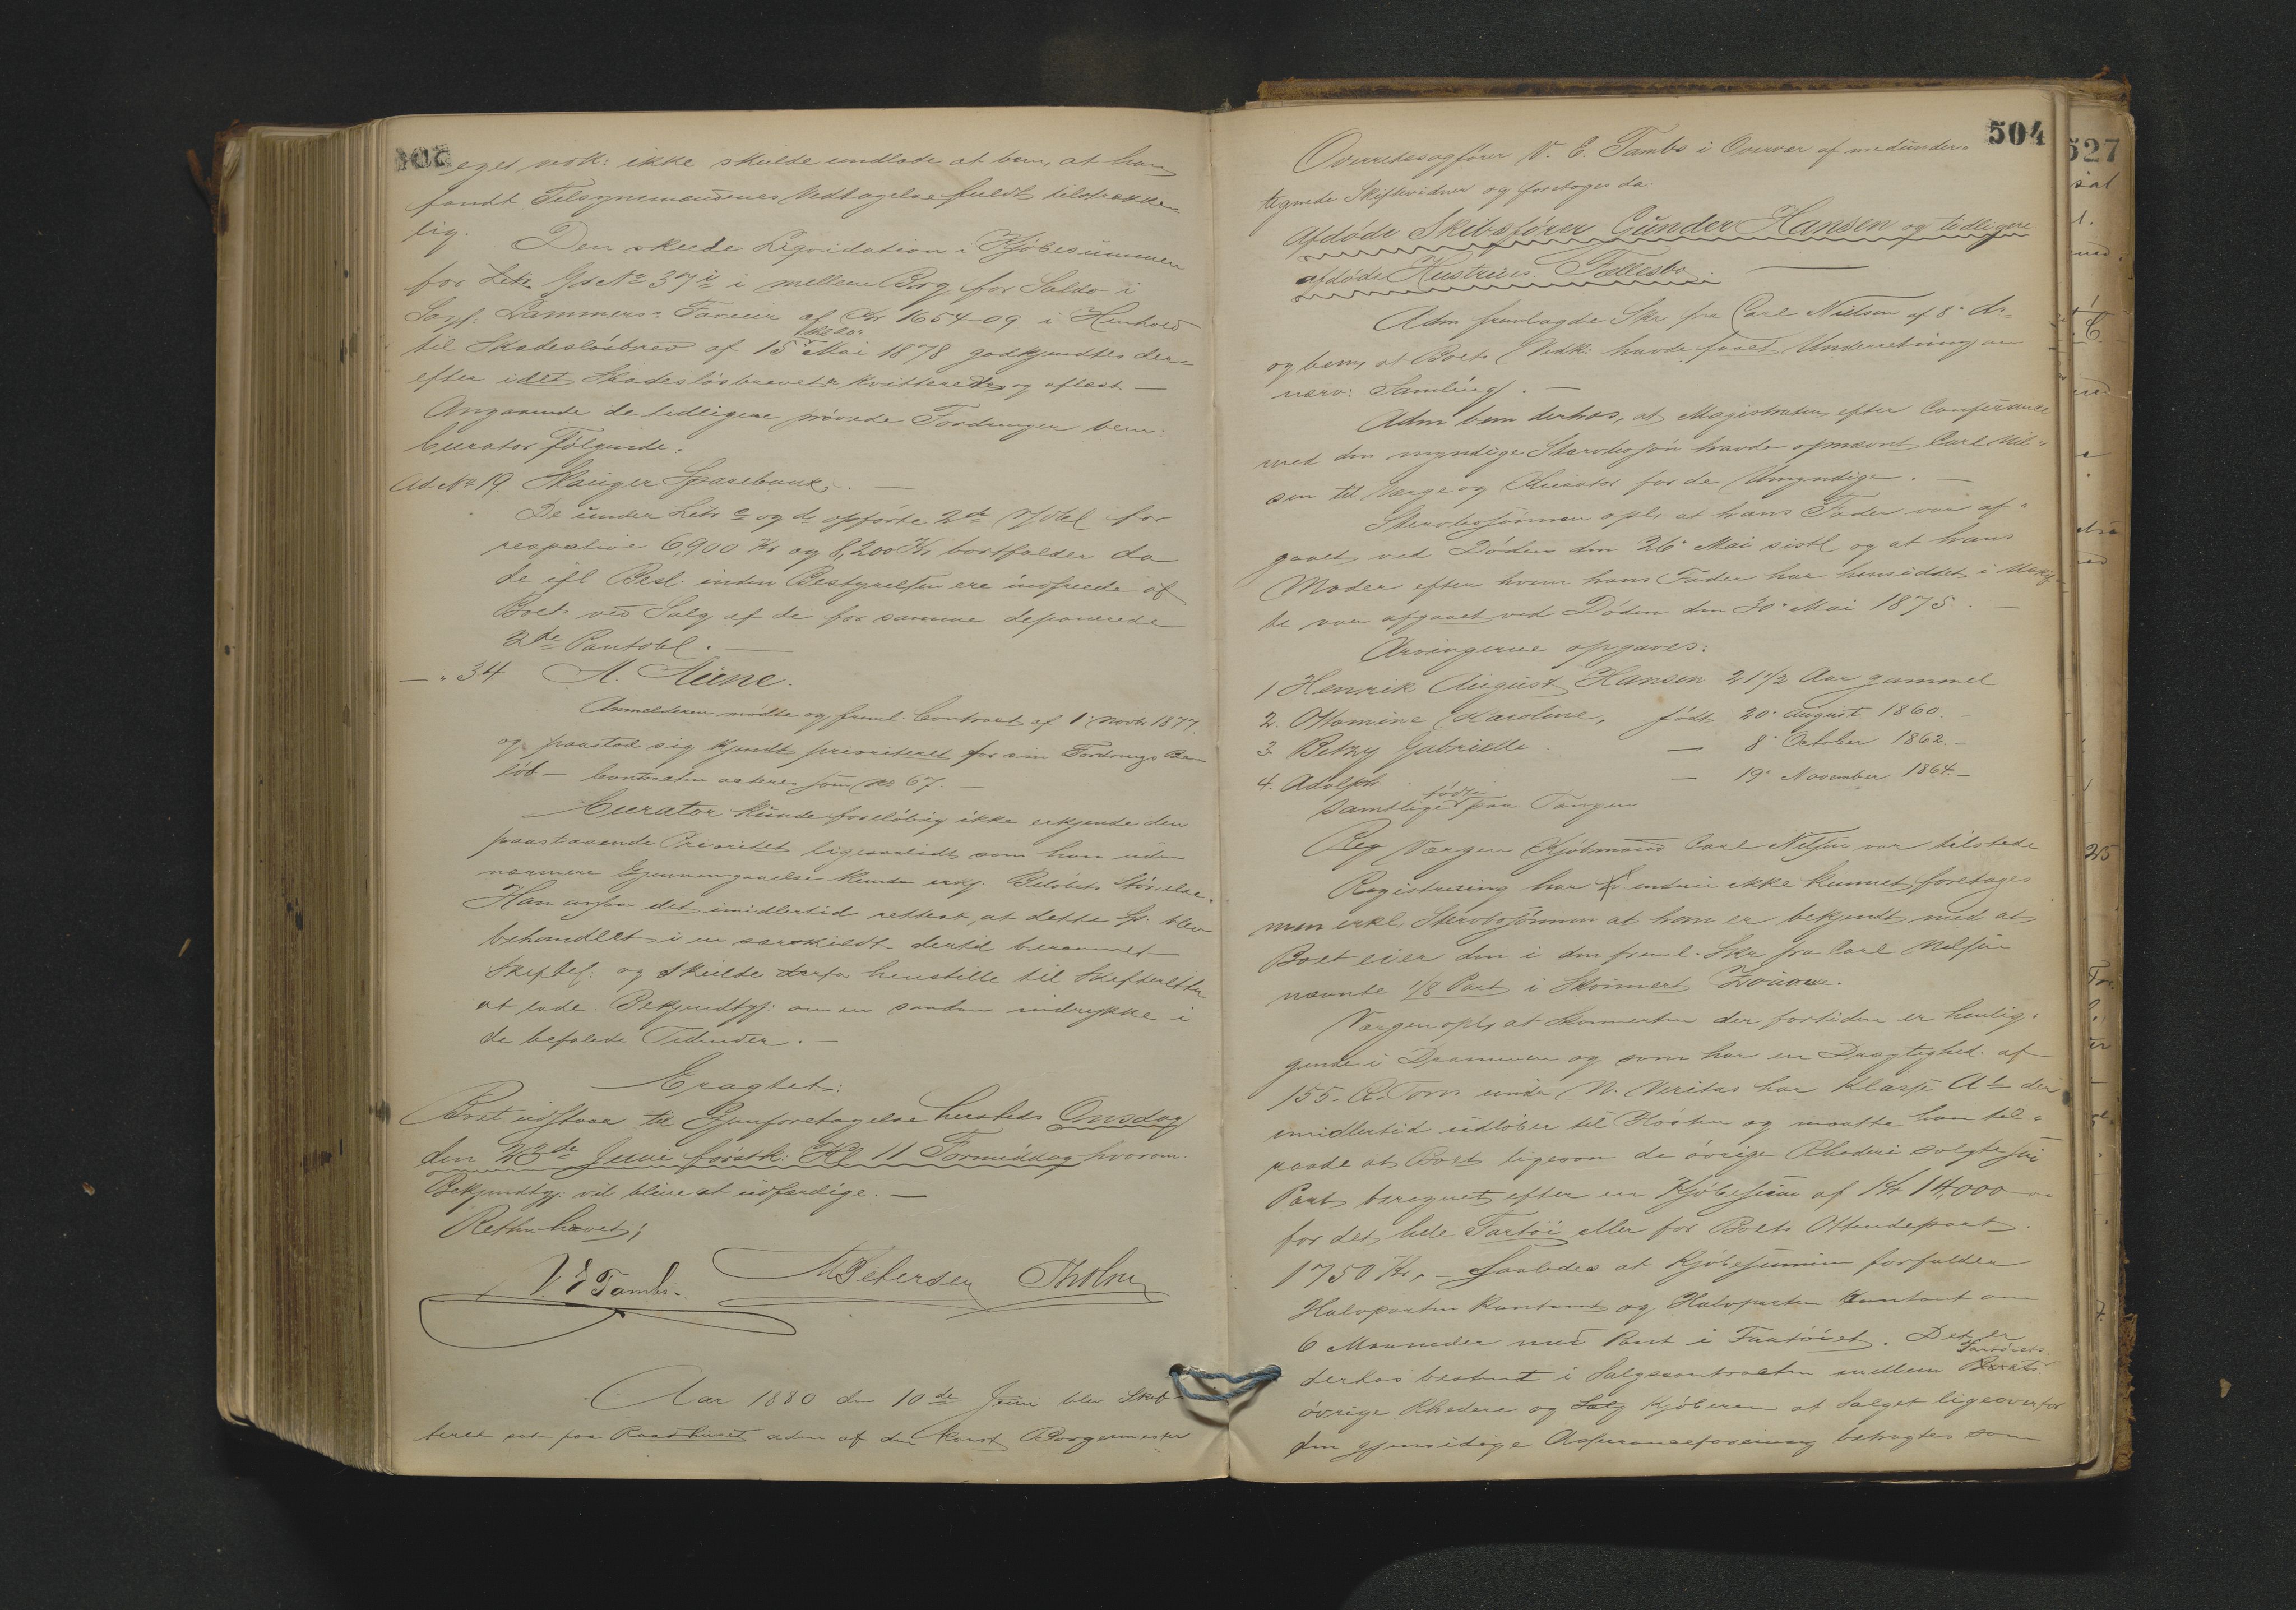 eget vedk: ikke skulde undlade at bem, at han
fandt Tilsynsmændenes Vedtagelse fuldt tilstrække-
lig.
Den skeede Liqvidation i Kjøbesummen
for Gs No 37 i mellem Bog for Saldo i
Sagf. Lammers Faveur af Kr 1654-09 i Henhold
til Skadesløsbrev af 15 Mai 1878 godkjendtes der-
efter idet Skadesløsbrevet kvitteredes og aflæst. —
Angaaende de tidligere prøvede Fordringer bem:
Curator Følgende:
Ad No 19. Skauger Sparebank. —
De under Litr c og d opførte 2de Obl for
respective 6,900 Kr og 8,200 Kr bortfalder da
de ifl Besl. inden Bestyrelsen ere indfriede af
Boet ved Salg af de for samme deponerede
2de Pantobl. —
— " 34 A. Aune.
Anmelderen mødte og freml. Contract af 1 Novbr 1877.
og paastod sig kjendt prioriteret for sin Fordrings Be-
løb — Contracten acteres som No 67. —
Curator kunde foreløbig ikke erkjende den
paastaaende Prioritet ligesaalidt som han uden
nærmere Gjennemgaaelse kunde erkj. Beløbets Størrelse.
Han ansaa det imidlertid rettest, at dette Sp. blev
behandlet i en særskildt dertil berammet
Skiftes: og skulde derfor henstille til Skifteretten
at lade Bekjendtgj: om en saadan indrykke i
de befalede Tidender. —
Eragtet:
Boet udstaar til Gjenforetagelse hersteds Onsdag
den 23de Juni førstk: Kl 11 Formiddag hvorom
Bekjendtgj: vil blive at udfærdige. —
Retten hævet;
V E Tambs. M Petersen Tholm
Aar 1880 den 10de Juni blev Skif-
teret sat paa Raadhuset adm af den konst Borgermester
504
Overretssagfører V. E. Tambs i Overvær af medunder-
tegnede Skiftevidner og foretoges da:
Afdøde Skibsfører Gunder Hansen og tidligere
afdøde Hustrues Fællesbo. —
Adm fremlagde Skr fra Carl Nielsen af 8 ds
og bem, at Boets Vedk: havde faaet Underretning om
nærv: Samling. —
Adm bem derhos, at Magistraten efter Conferance
med den myndige Stervbosøn havde opnævnt Carl Niel-
sen til Værge og Curator for de Umyndige. —
Stervbosønnen opl, at hans Fader var af-
gaaet ved Døden den 26 Mai sistl og at hans
Moder efter hvem hans Fader har hensiddet i Uskif-
te var afgaaet ved Døden den 30 Mai 1875. —
Arvingerne opgaves:
1 Henrik August Hansen 21 1/2 Aar gammel
2. Ottomine Karoline, født 20 August 1860.
3. Betzy Gabrielle — 8 October 1862. —
4. Adolph — 19 November 1864. —
samtlige fødte paa Tangen
Værgen Kjøbmand Carl Nielsen var tilstede
Registrering har endnu ikke kunnet foretages
men erkl. Stervbosønnen at han er bekjendt med at
Boet eier den i den freml. Skr fra Carl Nielsen
nævnte 1/8 Part i Skonnert
Værgen opl, at Skonnerten der for tiden er henlig-
gende i Drammen og som har en Drægtighed af
155. R. Tons under N. Veritas har Klasse A der
imidlertid udløber til Høsten og maatte han til-
raade at Boet ligesom de øvrige Rhederi solgte sin
Part beregnet efter en Kjøbesum af Kr 14,000
for det hele Fartøi eller for Boets Ottendepart
1750 Kr. — saaledes at Kjøbesummen forfalder
Halvparten kontant og Halvparten kontant om
6 Maaneder med Pant i Fartøiet. Det er
derhos bestemt i Salgscontracten mellem Fartøiets
øvrige Rhedere og Kjøberen at Salget ligeoverfor
den gjensidige Assuranceforening betragtes som
527